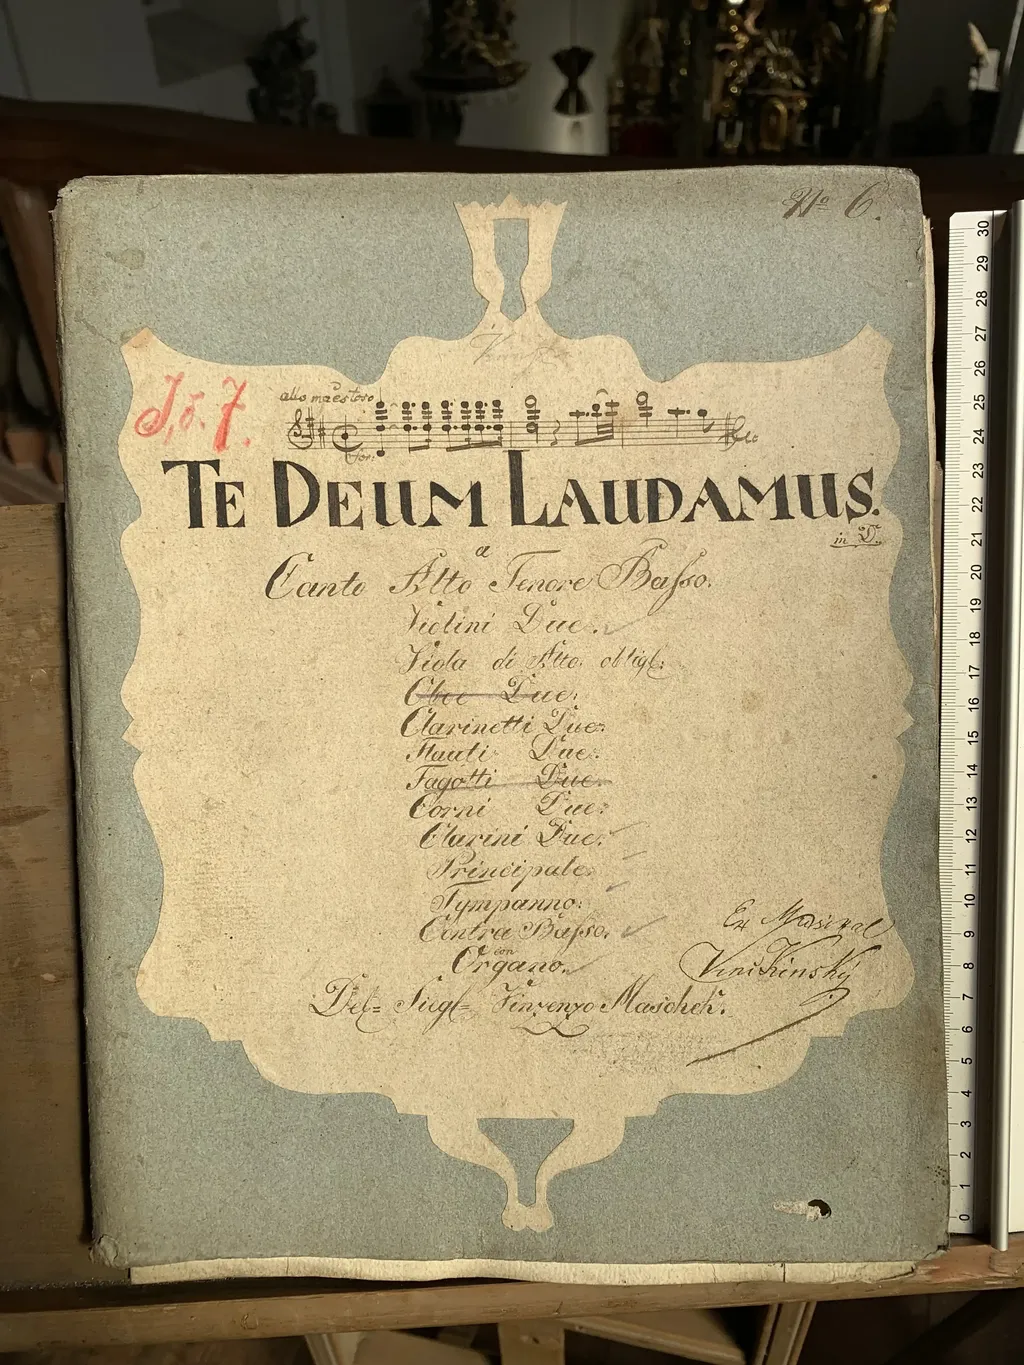 No 6.
I. č. 7.
allo maestoso
for:
TE DEUM LAUDAMUS.
in D.
a
Canto Alto Tenore Basso.
Violini Due.
Viola di Alto obligt:
Oboe Due.
Clarinetti Due.
Flauti Due.
Fagotti Due.
Corni Due.
Clarini Due.
Principale.
Tympanno.
Contra Basso.
con
Organo.
Ex
Del= Sigl= Vinzenzo Maschek.
30 29 28 27 26 25 24 23 22 21 20 19 18 17 16 15 14 13 12 11 10 9 8 7 6 5 4 3 2 1 0